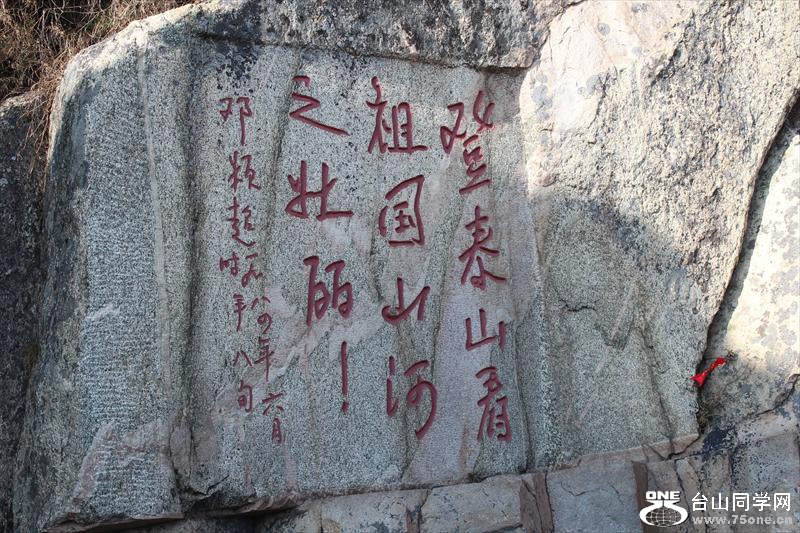 登泰山看
祖国山河
之壮丽!
邓颖超一九八四年六月
时年八旬
ONE
75
台山同学网
www.75one.cn